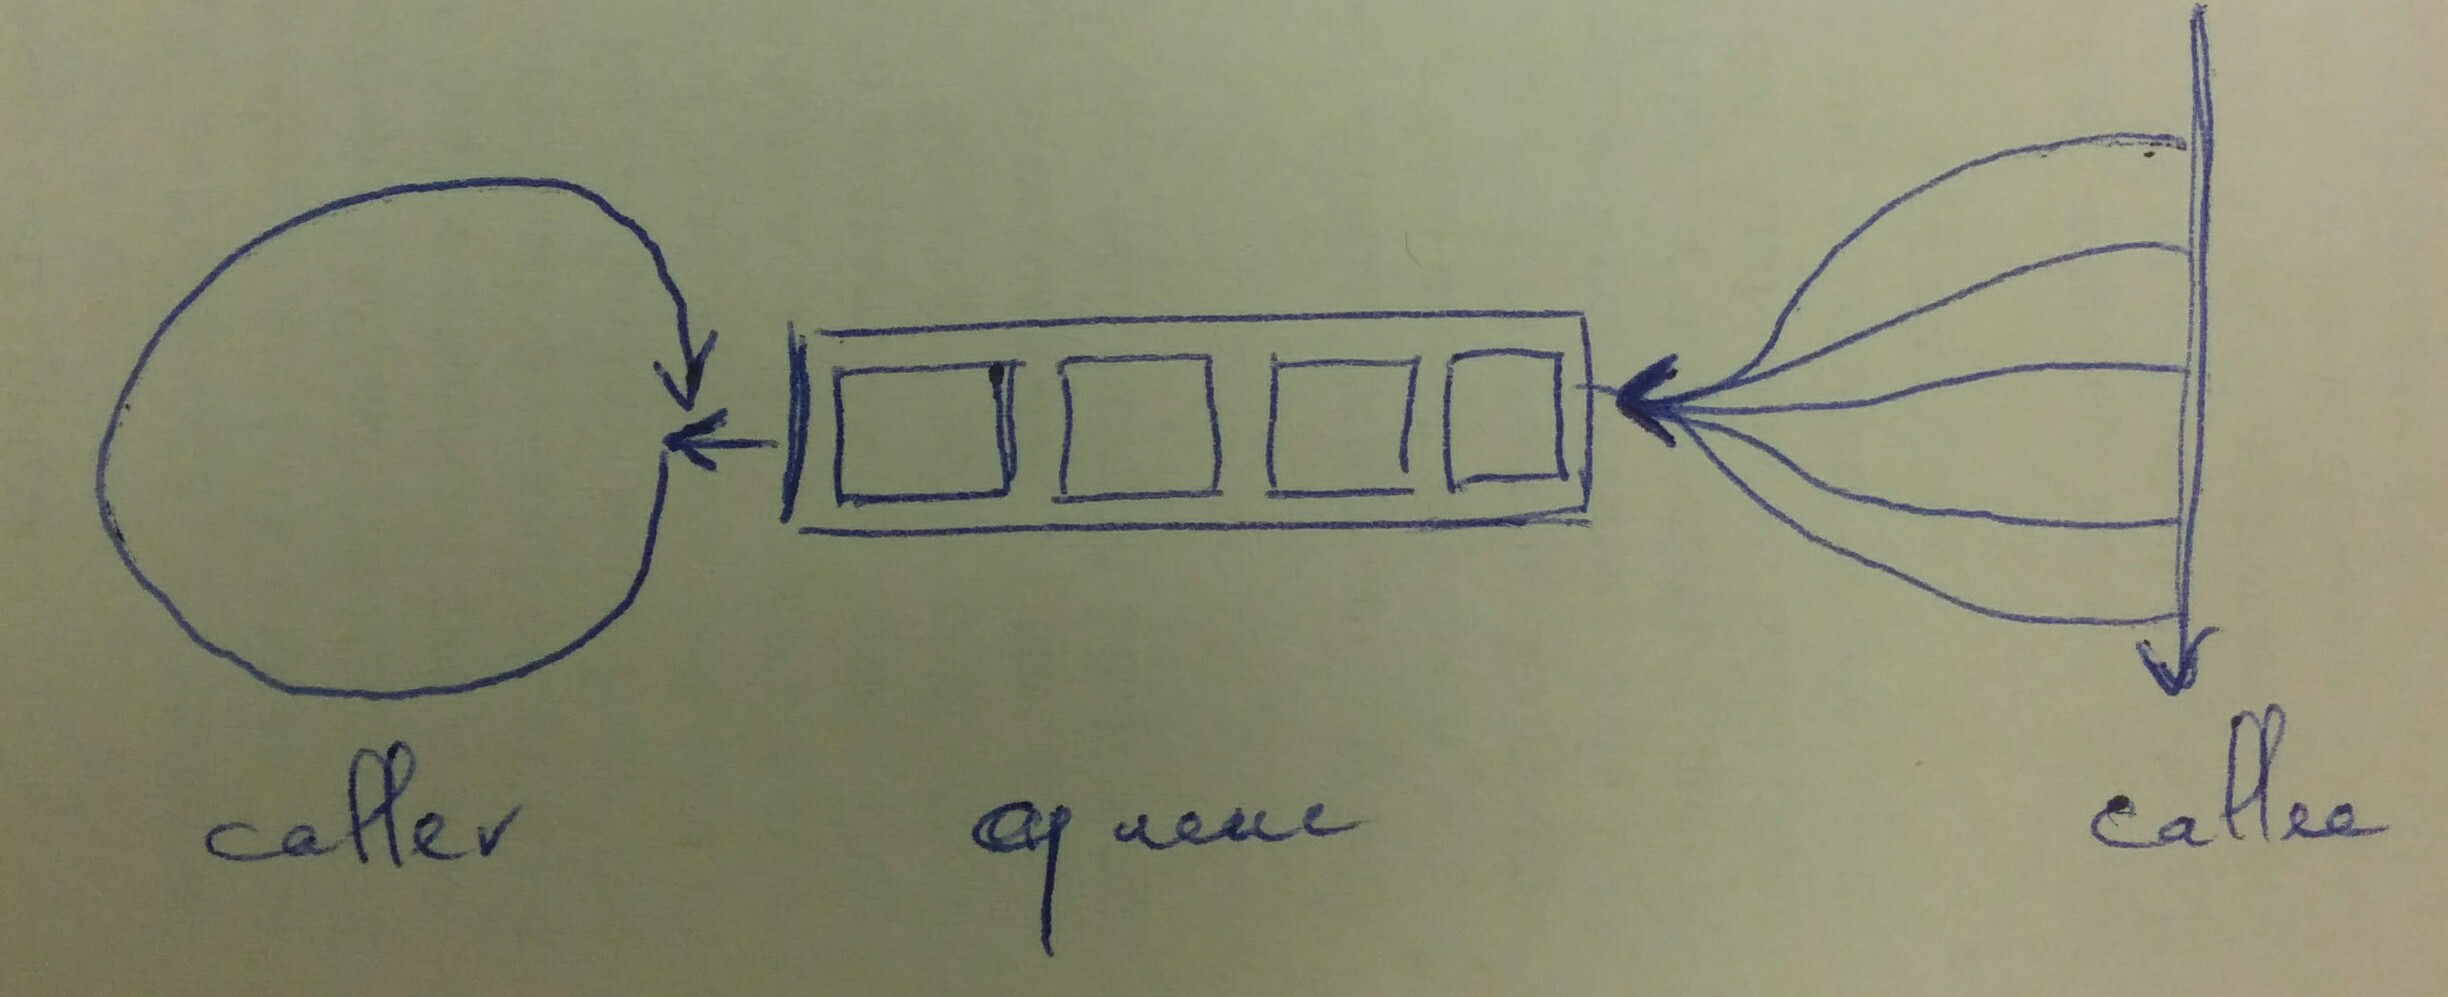 caller queue callee